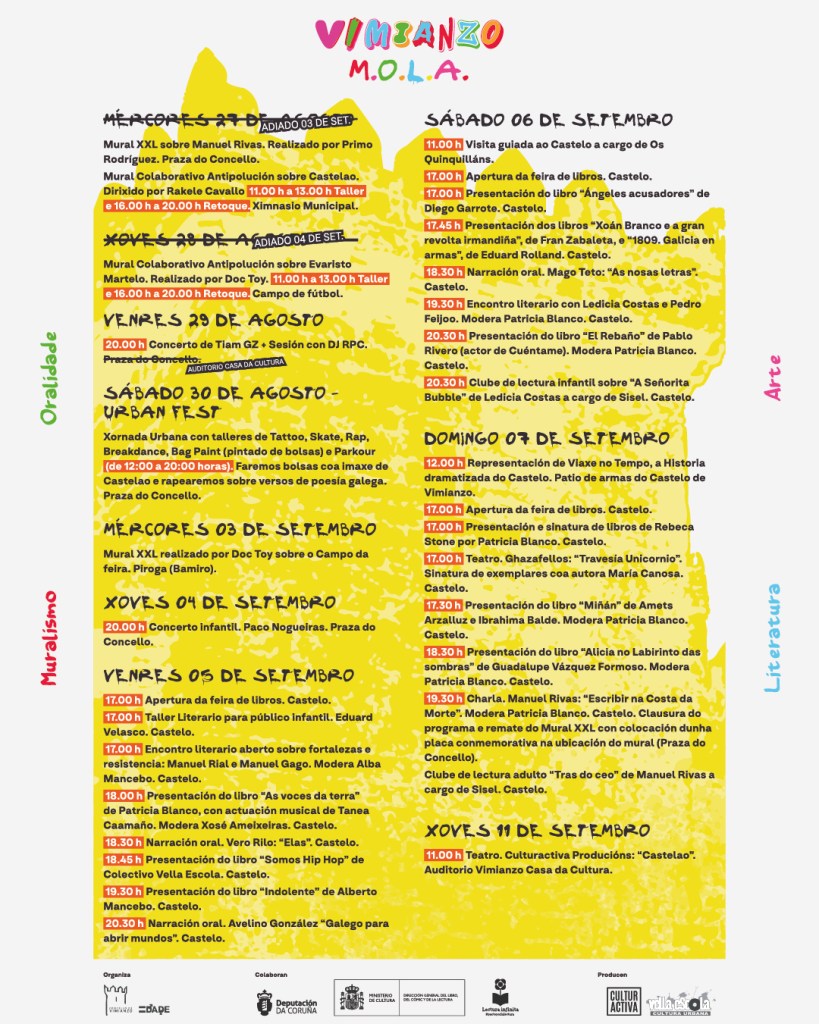 VIMIANZO
M.O.L.A.
MÉRCORES 27 DE AGOSTO
ADIADO 03 DE SET.
Mural XXL sobre Manuel Rivas. Realizado por Primo
Rodríguez. Praza do Concello.
Mural Colaborativo Antipolución sobre Castelao.
Dirixido por Rakele Cavallo 11.00 h a 13.00 h Taller
e 16.00 h a 20.00 h Retoque. Ximnasio Municipal.
XOVES 28 DE AGOSTO
ADIADO 04 DE SET.
Mural Colaborativo Antipolución sobre Evaristo
Martelo. Realizado por Doc Toy. 11.00 h a 13.00 h Taller
e 16.00 h a 20.00 h Retoque. Campo de fútbol.
VENRES 29 DE AGOSTO
20.00 h Concerto de Tiam GZ + Sesión con DJ RPC.
Praza do Concello.
AUDITORIO CASA DA CULTURA
SÁBADO 30 DE AGOSTO -
URBAN FEST
Xornada Urbana con talleres de Tattoo, Skate, Rap,
Breakdance, Bag Paint (pintado de bolsas) e Parkour
(de 12:00 a 20:00 horas). Faremos bolsas coa imaxe de
Castelao e rapearemos sobre versos de poesía galega.
Praza do Concello.
MÉRCORES 03 DE SETEMBRO
Mural XXL realizado por Doc Toy sobre o Campo da
feira. Piroga (Bamiro).
XOVES 04 DE SETEMBRO
20.00 h Concerto infantil. Paco Nogueiras. Praza do
Concello.
VENRES 05 DE SETEMBRO
17.00 h Apertura da feira de libros. Castelo.
17.00 h Taller Literario para público infantil. Eduard
Velasco. Castelo.
17.00 h Encontro literario aberto sobre fortalezas e
resistencia: Manuel Rial e Manuel Gago. Modera Alba
Mancebo. Castelo.
18.00 h Presentación do libro "As voces da terra"
de Patricia Blanco, con actuación musical de Tanea
Caamaño. Modera Xosé Ameixeiras. Castelo.
18.30 h Narración oral. Vero Rilo: "Elas". Castelo.
18.45 h Presentación do libro "Somos Hip Hop" de
Colectivo Vella Escola. Castelo.
19.30 h Presentación do libro "Indolente" de Alberto
Mancebo. Castelo.
20.30 h Narración oral. Avelino González "Galego para
abrir mundos". Castelo.
SÁBADO 06 DE SETEMBRO
11.00 h Visita guiada ao Castelo a cargo de Os
Quinquilláns.
17.00 h Apertura da feira de libros. Castelo.
17.00 h Presentación do libro "Ángeles acusadores" de
Diego Garrote. Castelo.
17.45 h Presentación dos libros "Xoán Branco e a gran
revolta irmandiña", de Fran Zabaleta, e "1809. Galicia en
armas", de Eduard Rolland. Castelo.
18.30 h Narración oral. Mago Teto: "As nosas letras".
Castelo.
19.30 h Encontro literario con Ledicia Costas e Pedro
Feijoo. Modera Patricia Blanco. Castelo.
20.30 h Presentación do libro "El Rebaño" de Pablo
Rivero (actor de Cuéntame). Modera Patricia Blanco.
Castelo.
20.30 h Clube de lectura infantil sobre "A Señorita
Bubble" de Ledicia Costas a cargo de Sisel. Castelo.
DOMINGO 07 DE SETEMBRO
12.00 h Representación de Viaxe no Tempo, a Historia
dramatizada do Castelo. Patio de armas do Castelo de
Vimianzo.
17.00 h Apertura da feira de libros. Castelo.
17.00 h Presentación e sinatura de libros de Rebeca
Stone por Patricia Blanco. Castelo.
17.00 h Teatro. Ghazafellos: "Travesía Unicornio".
Sinatura de exemplares coa autora María Canosa.
Castelo.
17.30 h Presentación do libro "Miñán" de Amets
Arzalluz e Ibrahima Balde. Modera Patricia Blanco.
Castelo.
18.30 h Presentación do libro "Alicia no Labirinto das
sombras" de Guadalupe Vázquez Formoso. Modera
Patricia Blanco. Castelo.
19.30 h Charla. Manuel Rivas: "Escribir na Costa da
Morte". Modera Patricia Blanco. Castelo. Clausura do
programa e remate do Mural XXL con colocación dunha
placa conmemorativa na ubicación do mural (Praza do
Concello).
Clube de lectura adulto "Tras do ceo" de Manuel Rivas a
cargo de Sisel. Castelo.
XOVES 11 DE SETEMBRO
11.00 h Teatro. Culturactiva Producións: "Castelao".
Auditorio Vimianzo Casa da Cultura.
Oralidade
Muralismo
Arte
Literatura
Organiza
VIMIANZO
Colaboran
Deputación
DA CORUÑA
MINISTERIO
DE CULTURA
DIRECCIÓN GENERAL DEL LIBRO,
DEL CÓMIC Y DE LA LECTURA
Lectura infinita
Producen
CULTUR
ACTIVA
vella escola
CULTURA URBANA